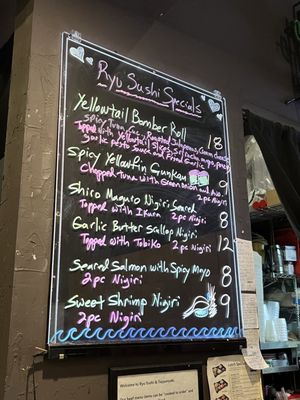 Ryu Sushi Specials
Yellowtail Bomber Roll 18
Spicy Tuna, Roasted Jalapenos, Cream cheese,
Topped with Yellowtail, Sriracha mayo, ponzu
garlic pesto sauce and Fried Garlic
Spicy Yellowfin Gunkan 9
Chopped tuna with Green onion and Avo.
2pc Nigiri
Shiro Maguro Nigiri Seared 8
Topped with Ikura 2pc Nigiri
Garlic Butter Scallop Nigiri 12
Topped with Tobiko 2pc Nigiri
Seared Salmon with Spicy Mayo 8
2pc Nigiri
Sweet Shrimp Nigiri 9
2pc Nigiri
Welcome to Ryu Sushi & Teppanyaki.